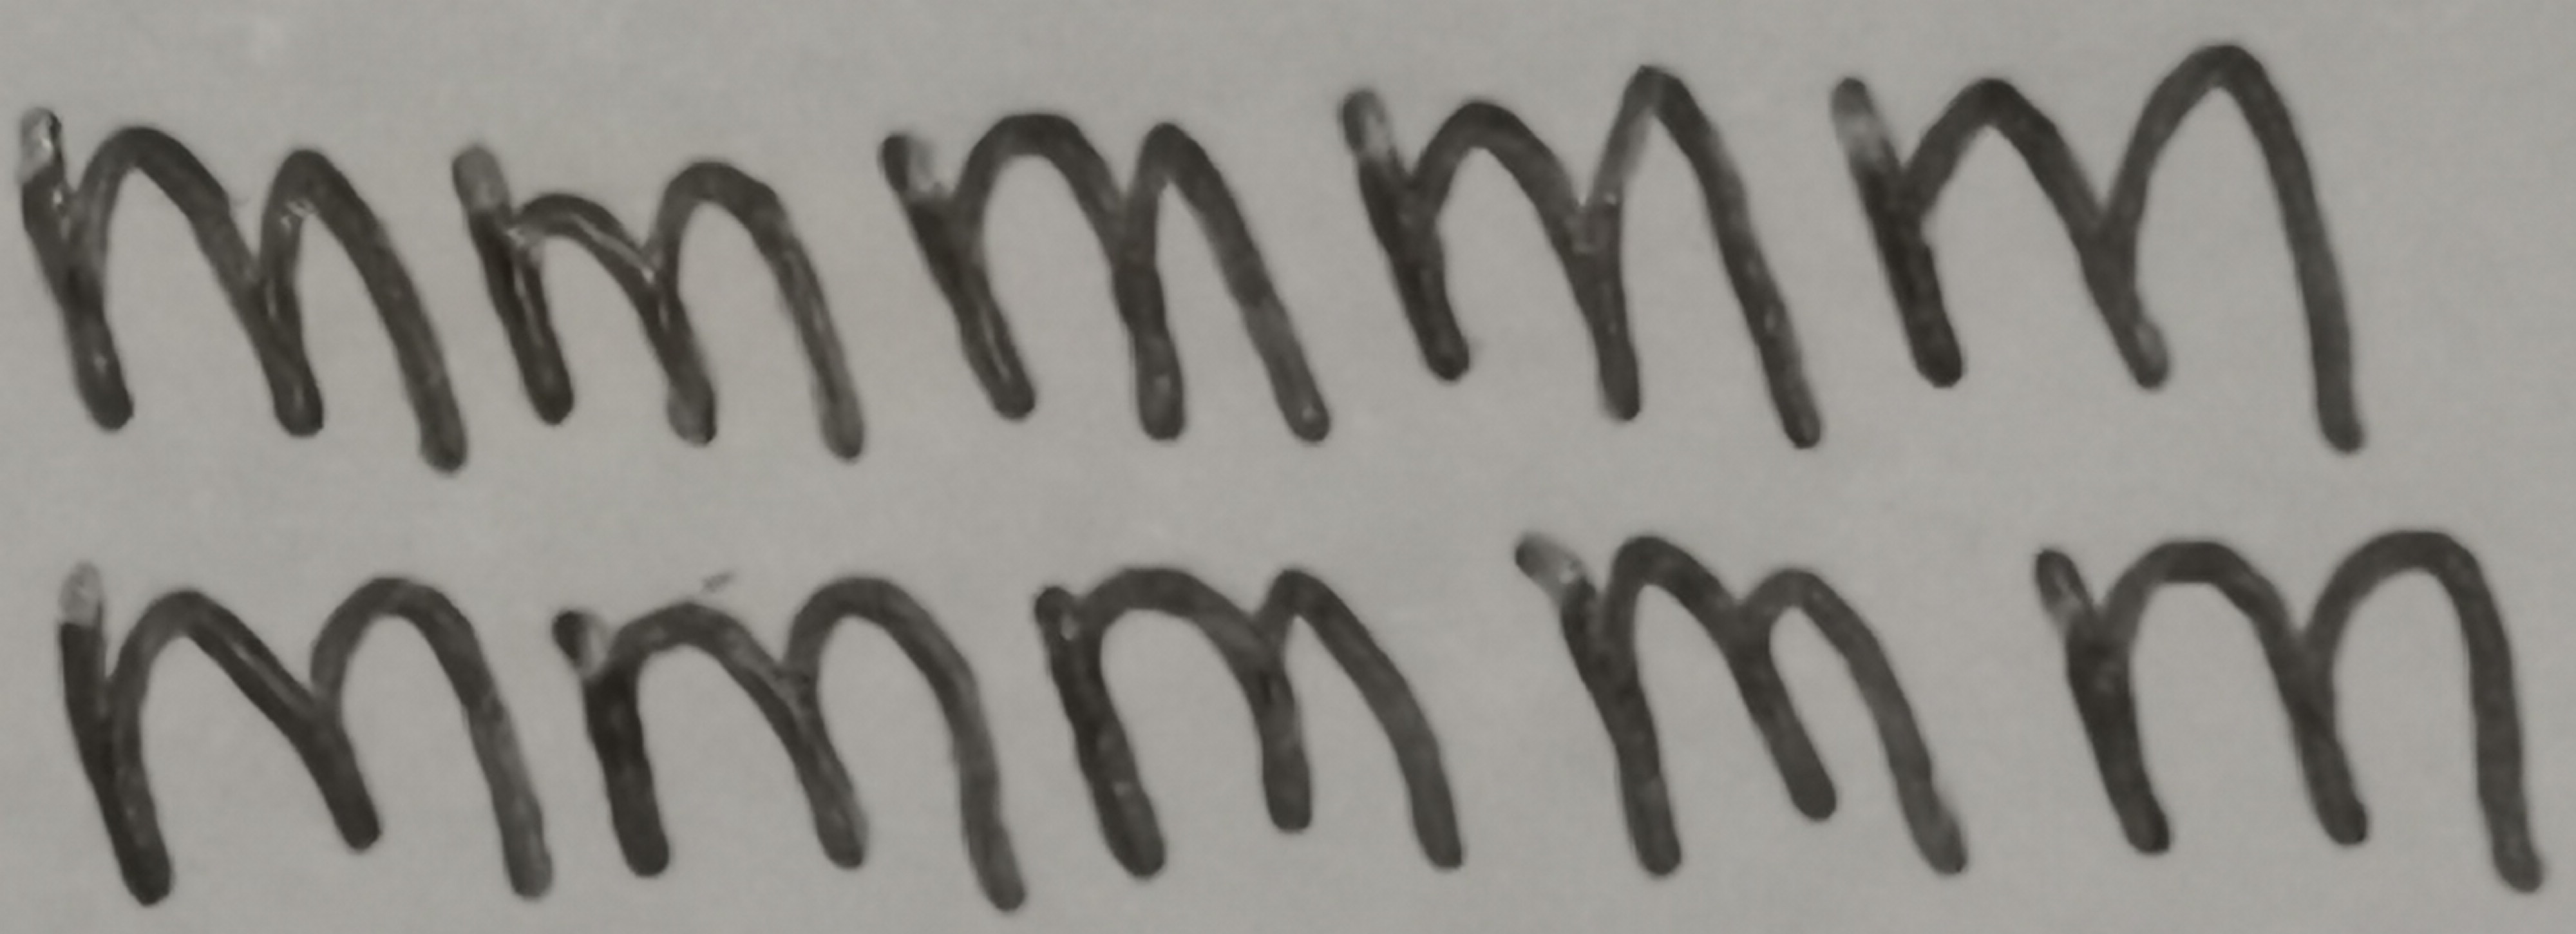 m m m m m
m m m m m